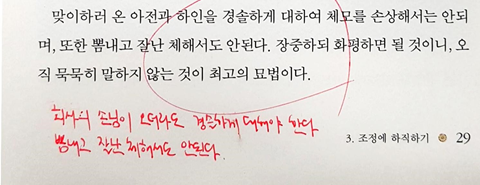 맞이하러 온 아전과 하인을 경솔하게 대하여 체모를 손상해서는 안되
며, 또한 뽐내고 잘난 체해서도 안된다. 장중하되 화평하면 될 것이니, 오
직 묵묵히 말하지 않는 것이 최고의 묘법이다.
회사의 손님이 오더라도 경솔하게 대해야 한다
뽐내고 잘난 체해서도 안된다.
3. 조정에 하직하기 29